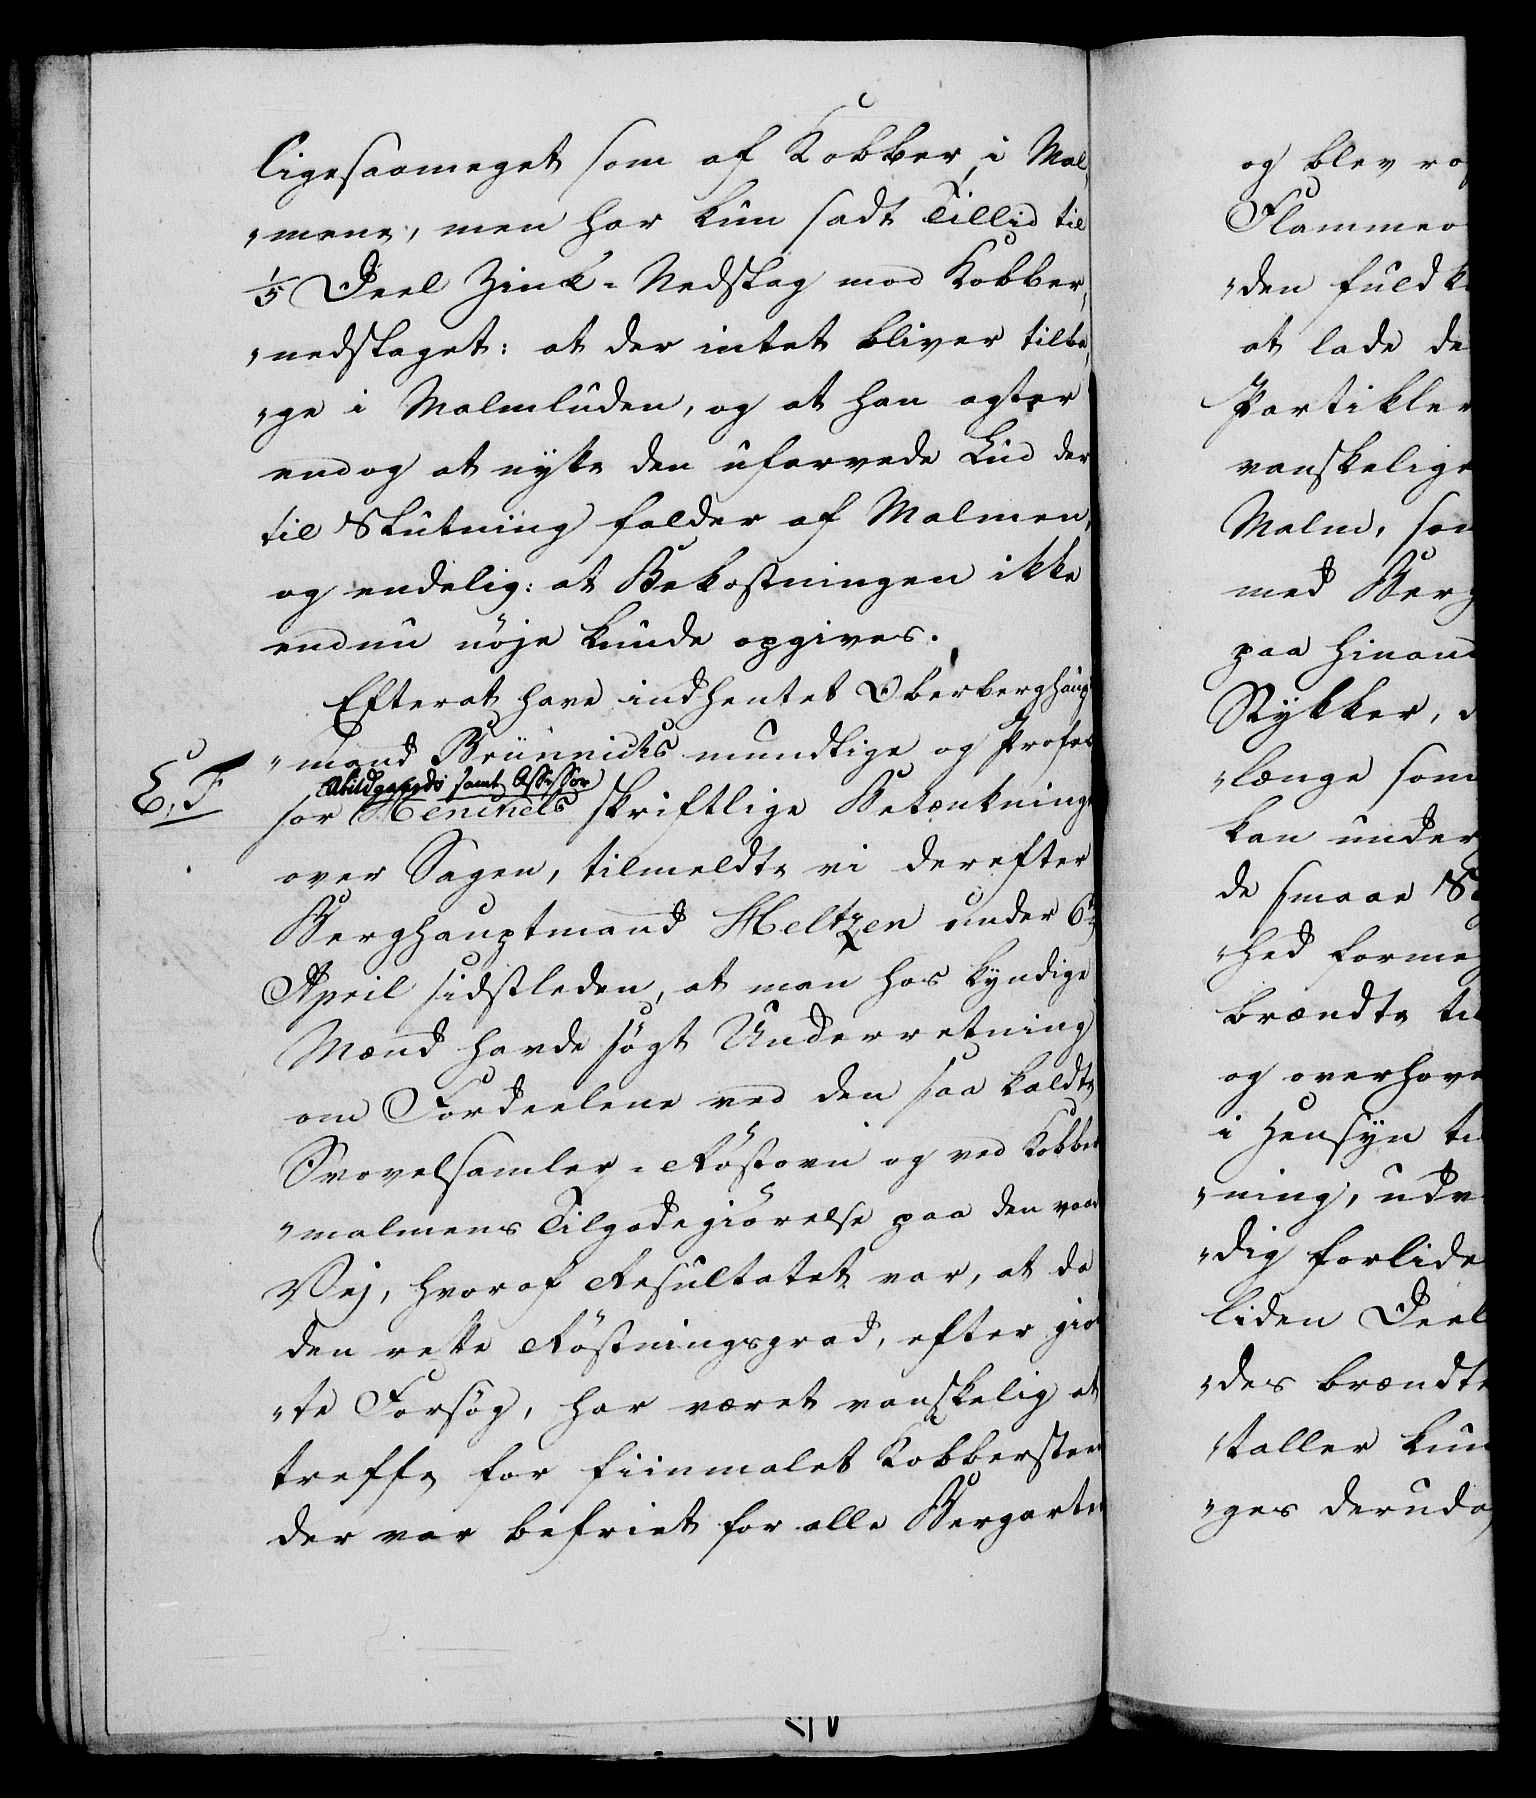 ligesaameget som af Kobber, i Mal„
„mene, men har kun sadt Tillid til
1/5 Deel Zink-Nedslag mod Kobber„
„nedslaget: at der intet bliver tilba„
„ge i Malmluden, og at han agter
endog at nytte den ufarvede Lud der
til Slutning falder af Malmen,
og endelig: at Bekostningen ikke
endnu nöje kunde opgives.
Efterat have indhentet Oberberghaupt
„mand Brünnichs mundtlige og Profes
E. F
Abildgaards samt Assessor
sor Henckels skriftlige Betænkning
over Sagen, tilmeldte vi derefter
Berghauptmand Heltzen under 6te
April sidstleden, at man hos kyndige
Mænd havde sögt Underretning
om Fordeelene ved den saa kaldte
Svovelsamler-Röstovn og ved Kobber
„malmens Tilgodegiörelse paa den vaade
Vej, hvoraf Resultatet var, at da
den rette Röstningsgrad, efter gior
„te Forsög, har været vanskelig at
treffe for fiinmalet Kobbersteen
der var befriet for alle Bergarter
og blev
Flammeo
„den fuldk
at lade de
Partikler
vanskelige
Malm, som
med Berg
paa hinand
Stykker,
„længe som
kan under
de smaae St
„hed forme
brændte til
og overhove
i Hensyn til
„ning, udv
„dig forlide
liden Deel
„des brændte
„taller kun
„ges derudaf